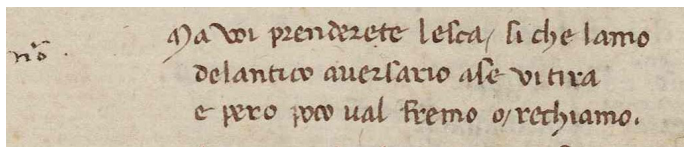 Ma voi prenderete lesca / si che lamo
nr̃o .
delantico auersario ase vi tira
e pero poco ual fremo o / rechiamo .